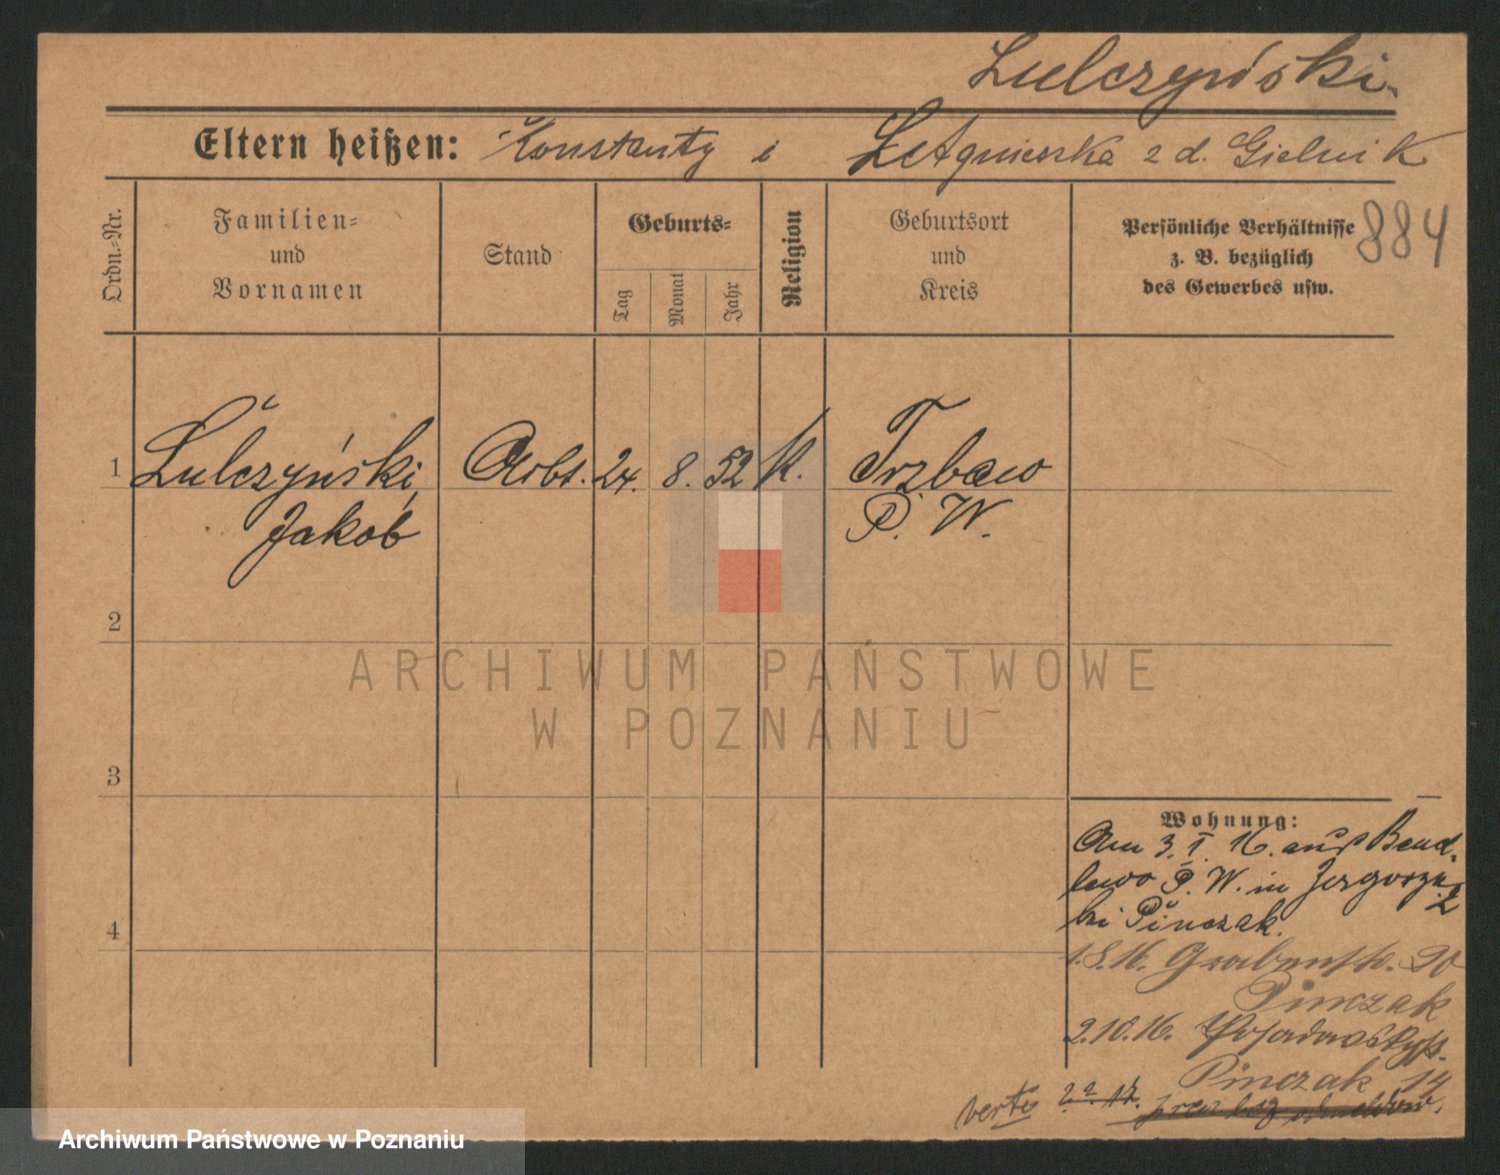 Lulczyński.
Eltern heißen: Konstanty i Agnieszka z d. Gielnik
884
Ordn.-Nr.
Familien- und Vornamen
Stand
Geburts-
Tag
Monat
Jahr
Religion
Geburtsort und Kreis
Persönliche Verhältnisse z. B. bezüglich des Gewerbes usw.
1
Lulczyński, Arbt. 24. 8. 52 K. Trzbaw
Jakob P. W.
2
ARCHIWUM PAŃSTWOWE
W POZNANIU
3
Wohnung:
Am 3. I. 16. aus Bend-
lewo P. W. in
bei Pinczak.
4
1.8.16. Grabenstr. 20
Pinczak
2.10.16. Posadowskystr.
Pinczak 14
verte
Archiwum Państwowe w Poznaniu